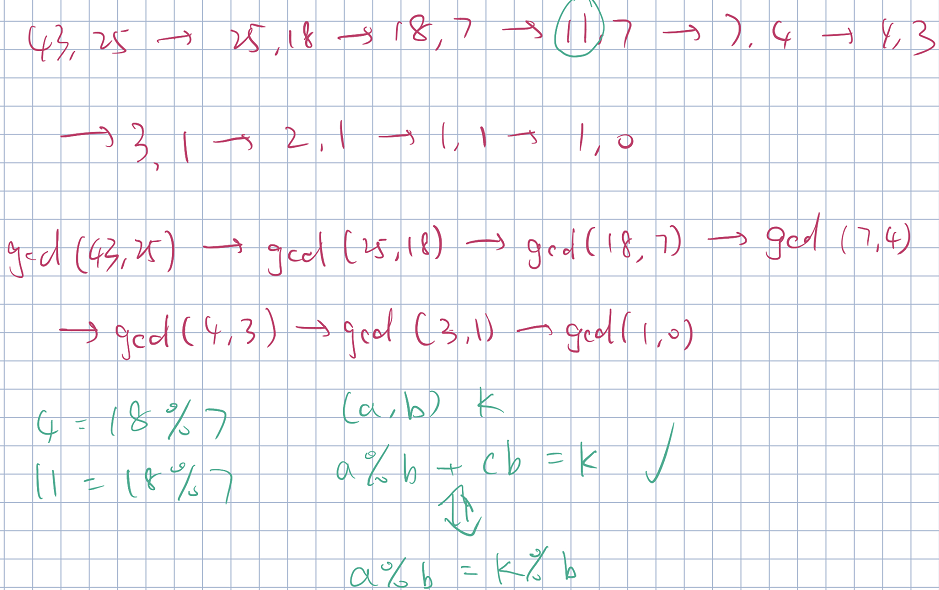 43, 25 → 25, 18 → 18, 7 → 11, 7 → 7, 4 → 4, 3
→ 3, 1 → 2, 1 → 1, 1 → 1, 0
gcd(43,25) → gcd(25,18) → gcd(18,7) → gcd(7,4)
→ gcd(4,3) → gcd(3,1) → gcd(1,0)
4 = 18%7 (a,b) k
11 = 18%7 a%b + cb = k ✓
⇕
a%b = k%b